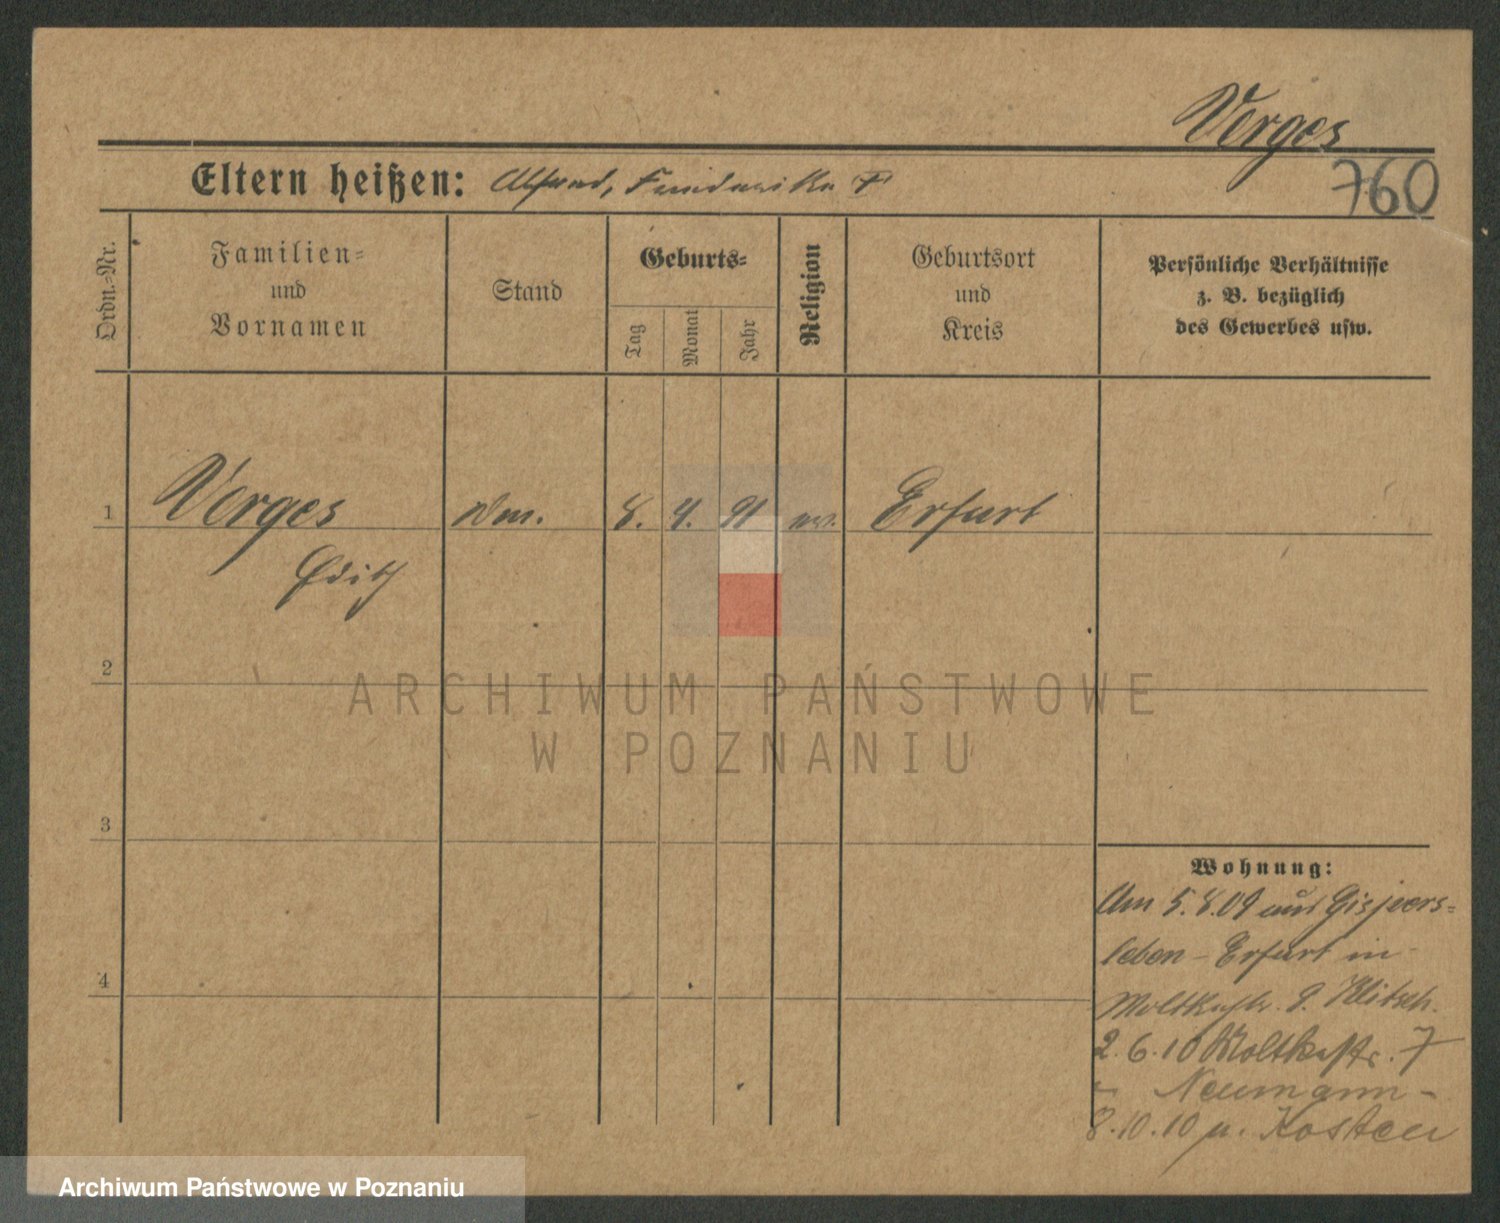 Verges
760
Eltern heißen: Alfred, Friederike F
Ordn.-Nr.
Familien-
und
Vornamen
Stand
Geburts-
Tag
Monat
Jahr
Religion
Geburtsort
und
Kreis
Persönliche Verhältnisse
z. B. bezüglich
des Gewerbes usw.
1 Verges 8. 4. 91 ev. Erfurt
Edith
2
ARCHIWUM PAŃSTWOWE
W POZNANIU
3
Wohnung:
Am 5.8.09 aus Gispers-
leben - Erfurt in
4
Moltkestr. 9. Klitsch.
2.6.10 Moltkestr. 7
Neumann -
8.10.10 n. Kosten
Archiwum Państwowe w Poznaniu